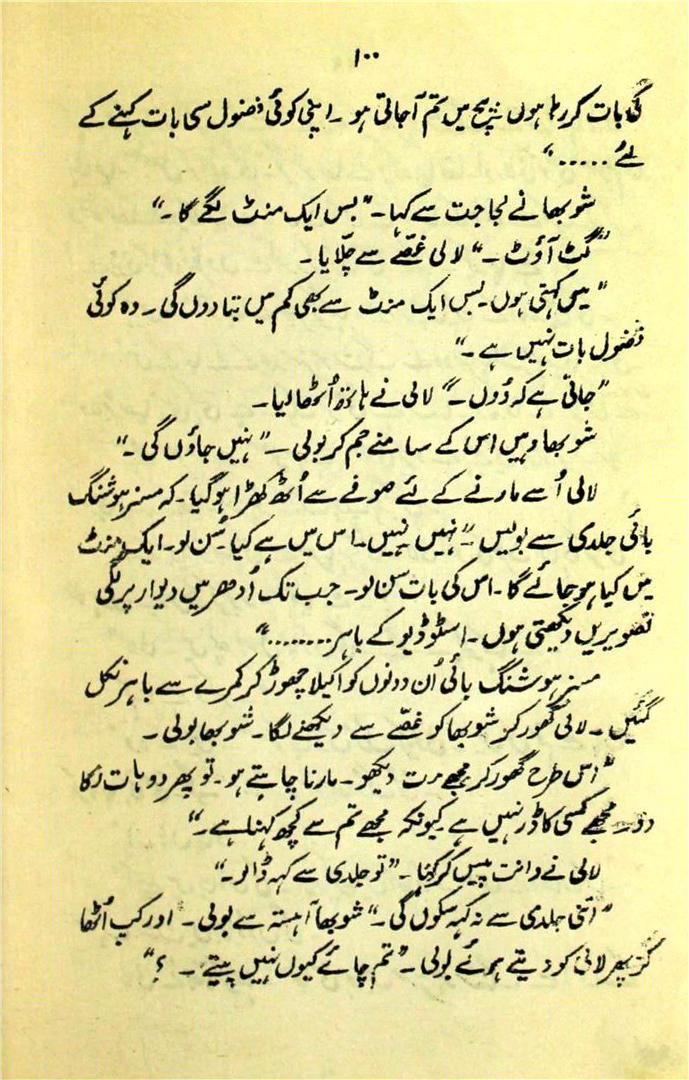 ۱۰۰
کی بات کر رہا ہوں بیچ میں تم آ جاتی ہو ۔ اپنی کوئی فضول سی بات کہنے کے
لئے ....."
شوبھا نے لجاجت سے کہا ۔ "بس ایک منٹ لگے گا ۔"
"گٹ آؤٹ ۔" لالی غصّے سے چلّایا ۔
"میں کہتی ہوں ۔ بس ایک منٹ سے بھی کم میں بتا دوں گی ۔ وہ کوئی
فضول بات نہیں ہے ۔"
"جاتی ہے کہ دُوں ۔" لالی نے ہاتھ اُٹھا لیا ۔
شوبھا وہیں اس کے سامنے جم کر بولی ۔ "نہیں جاؤں گی ۔"
لالی اُسے مارنے کے لئے صوفے سے اُٹھ کھڑا ہو گیا ۔ کہ مسز ہوشنگ
بائی جلدی سے بولیں "نہیں نہیں ۔ اس میں ہے کیا ۔ سُن لو ۔ ایک منٹ
میں کیا ہو جائے گا ۔ اس کی بات سن لو ۔ جب تک اُدھر میں دیوار پر لگی
تصویریں دیکھتی ہوں ۔ اسٹوڈیو کے باہر ........"
مسز ہوشنگ بائی اُن دونوں کو اکیلا چھوڑ کر کمرے سے باہر نکل
گئیں ۔ لالی گھور کر شوبھا کو غصّے سے دیکھنے لگا ۔ شوبھا بولی ۔
"اس طرح گھور کر مجھے مت دیکھو ۔ مارنا چاہتے ہو ۔ تو پھر دو ہات لگا
دو ۔ مجھے کسی کا ڈر نہیں ہے کیونکہ مجھے تم سے کچھ کہنا ہے ۔"
لالی نے دانت پیس کر کہا ۔ "تو جلدی سے کہہ ڈالو ۔"
"اتنی جلدی سے نہ کہہ سکوں گی ۔" شوبھا آہستہ سے بولی ۔ اور کپ اُٹھا
کر پھر لالی کو دیتے ہوئے بولی ۔ "تم چائے کیوں نہیں پیتے ۔ ؟"